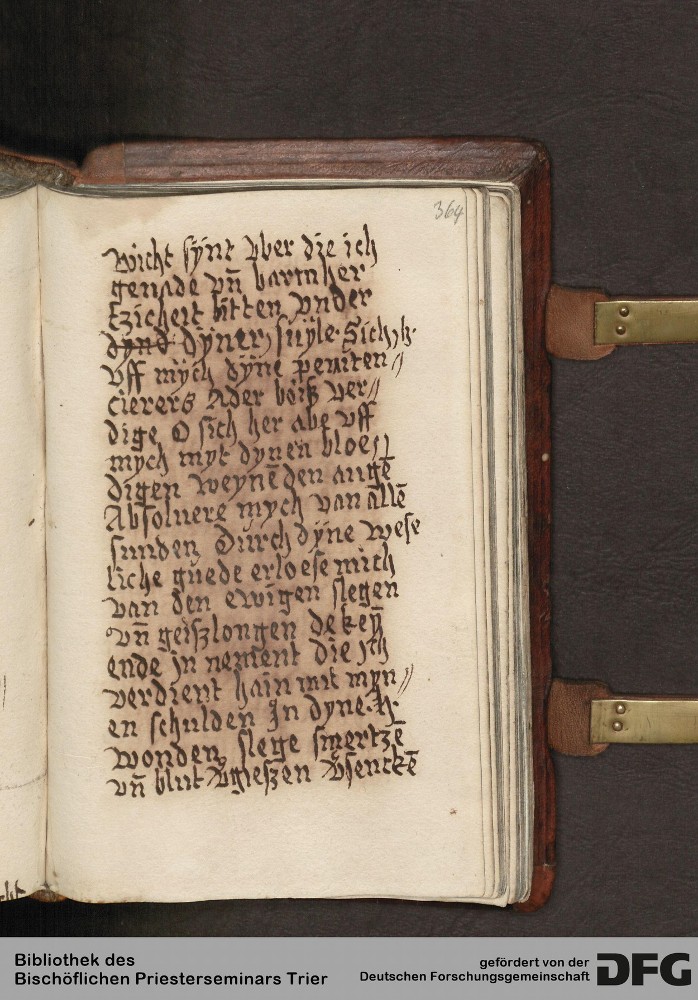 364
wicht sÿnt vber die ich
genade vn̄ barmher
tzicheit bitten vnder
dynd dÿner süyle Sich h
vff mÿch dÿne peniten //
cierers Ader böiß ver //
dige O sich her abe vff
mych myt dynen bloe
digen weynēden augē
Absoluere mych van allē
sunden Durch dÿne wese
liche guede erloese mich
van den ewigen slegen
vn̄ geiszlongen de keȳ
ende jn nement die ich
verdient hain mit myn //
en schulden In dyne h
wonden slege smertzē
vn̄ blut vgieszen vsenckē
Bibliothek des
Bischöflichen Priesterseminars Trier
gefördert von der
Deutschen Forschungsgemeinschaft
DFG